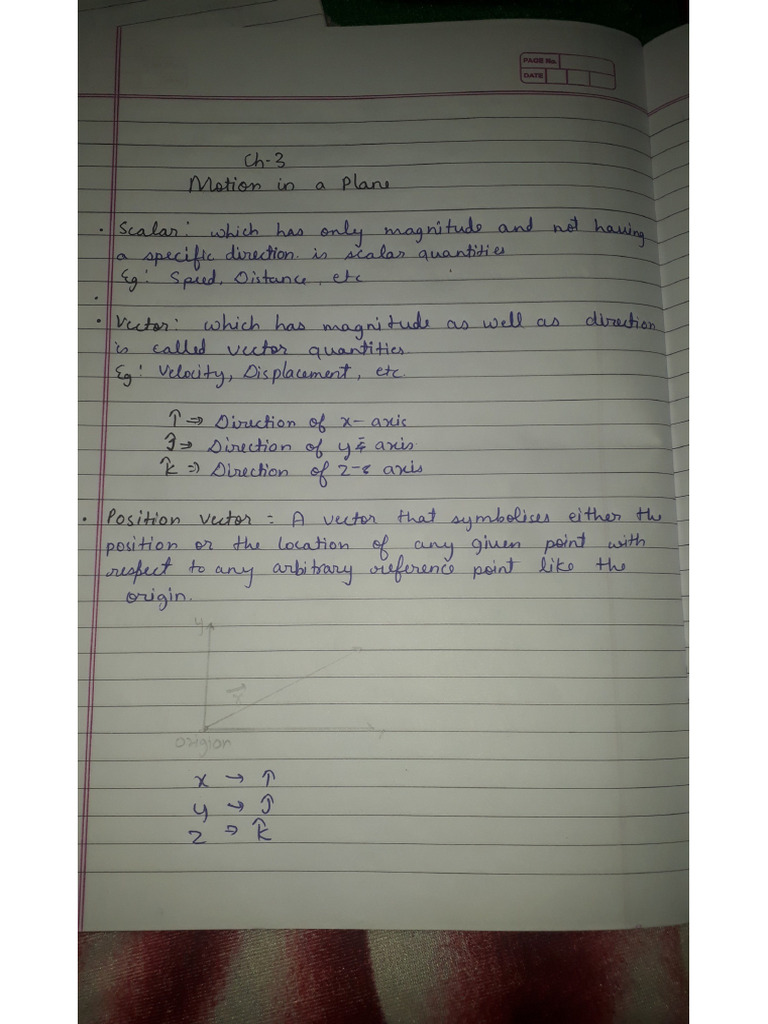 PAGE No.
DATE
Ch-3
Motion in a Plane
• Scalar: which has only magnitude and not having
a specific direction is scalar quantities
Eg: Speed, Distance, etc
• Vector: which has magnitude as well as direction
is called vector quantities.
Eg: Velocity, Displacement, etc.
î ⇒ Direction of x-axis
ĵ ⇒ Direction of y axis
k̂ ⇒ Direction of z- axis
• Position vector = A vector that symbolises either the
position or the location of any given point with
respect to any arbitrary reference point like the
origin.
y
origion
x → î
y → ĵ
z ⇒ k̂